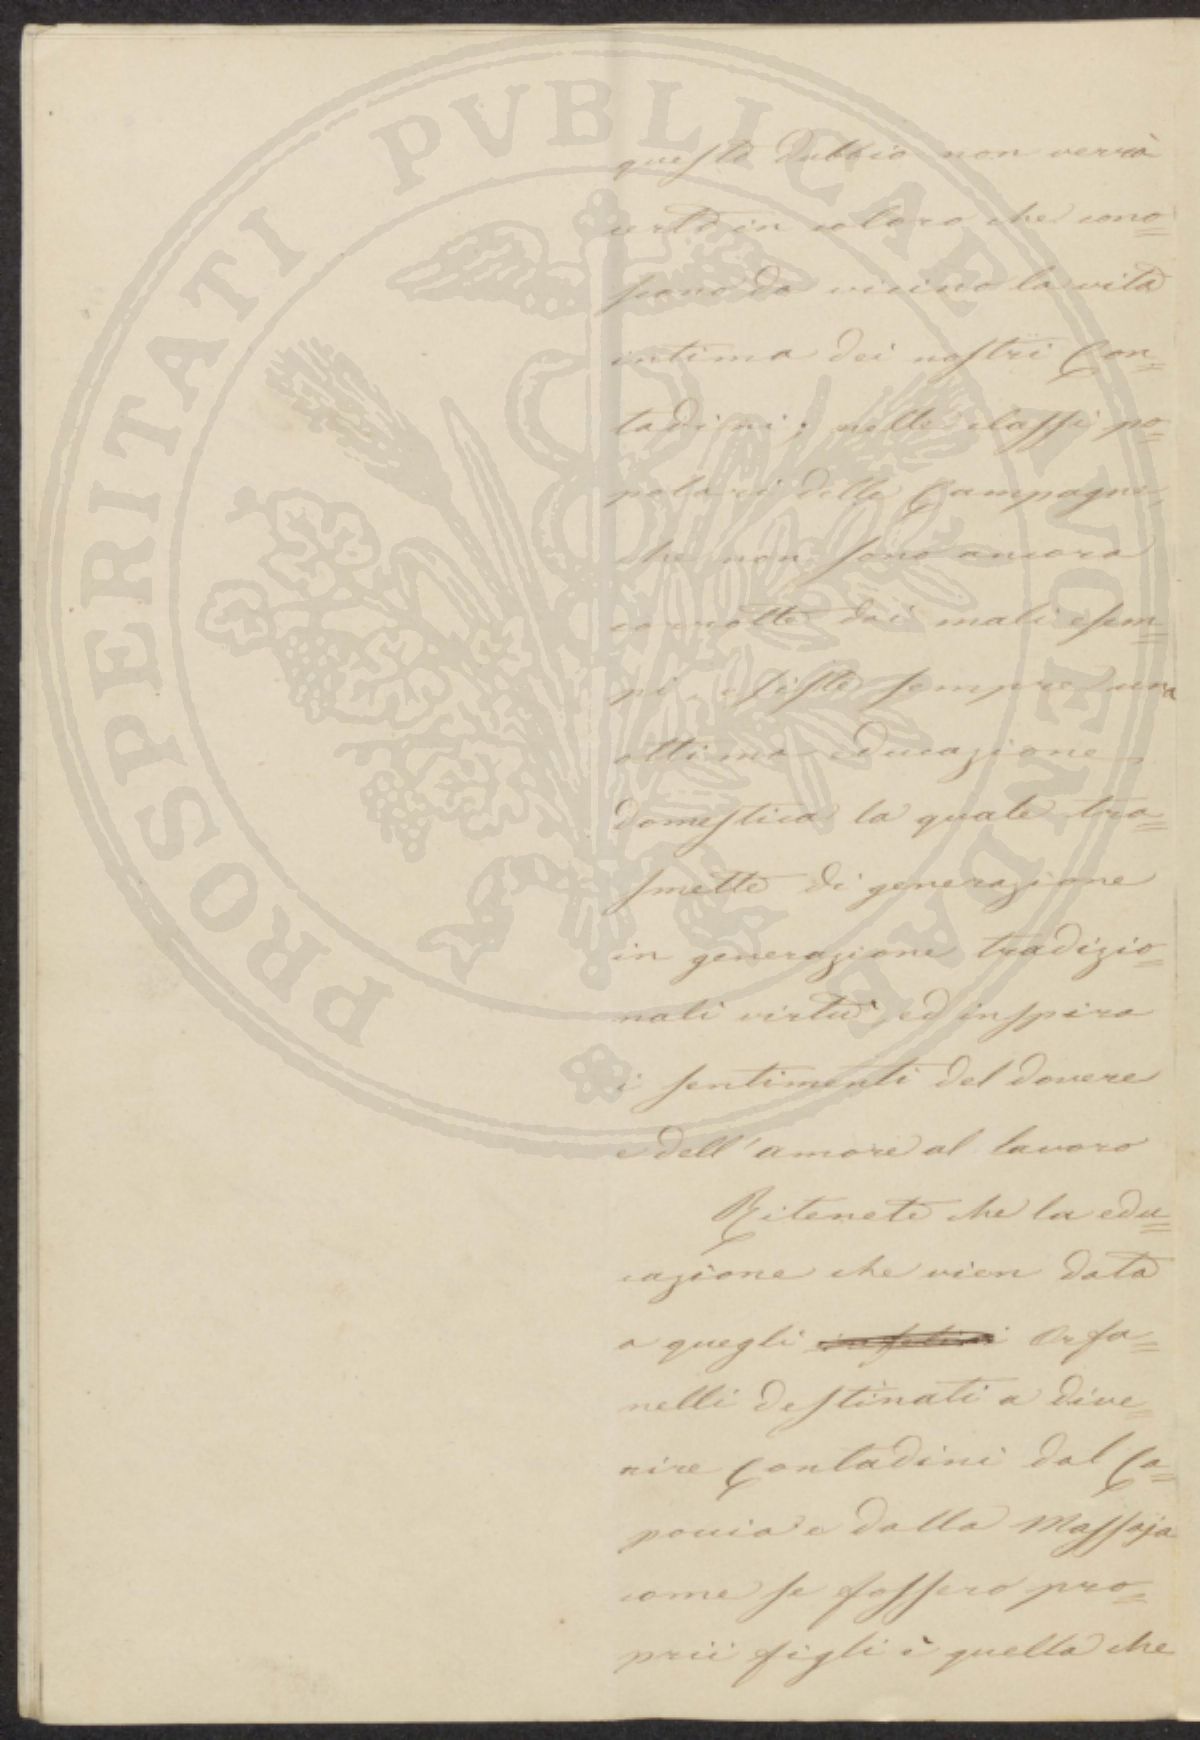 PROSPERITATI PVBLICAE AVGENDAE
questo dubbio non verrà
certo in coloro che cono=
scono da vicino la vita
intima dei nostri Con=
tadini; nelle classi po=
polari delle Campagne,
che non sono ancora
corrotte dai mali esem=
pi, esiste sempre una
ottima educazione
domestica la quale tra=
smette di generazione
in generazione tradizio=
nali virtù, ed inspira
i sentimenti del dovere
e dell'amore al lavoro
Ritenete che la edu=
cazione che vien data
a quegli infelici Orfa=
nelli destinati a dive=
nire Contadini dal Ca=
poccia e dalla Massaja
come se fossero pro=
prii figli è quella che